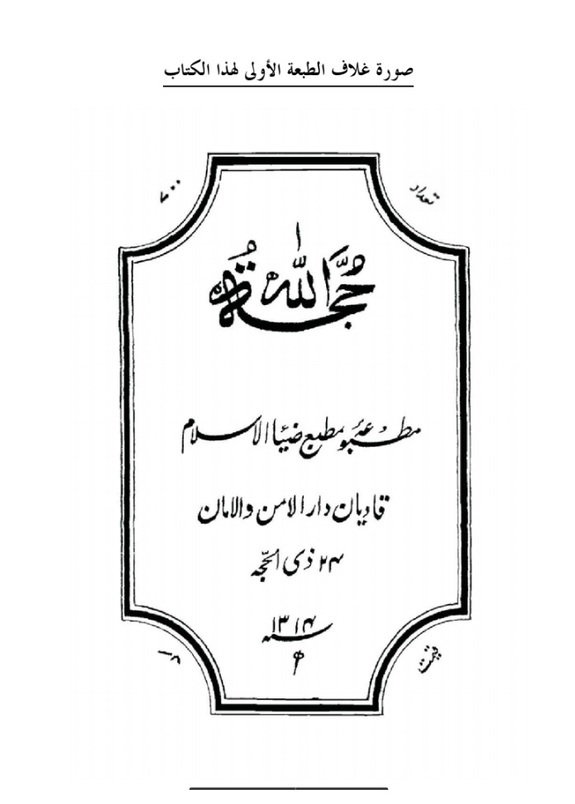 صورة غلاف الطبعة الأولى لهذا الكتاب
تعداد ۷۰۰
حُجَّةُ اللّٰه
مطبوعہ مطبع ضیاالاسلام
قادیان دارالامن والامان
۲۴ ذی الحجّہ
سنہ ۱۳۱۴ ھ
قیمت